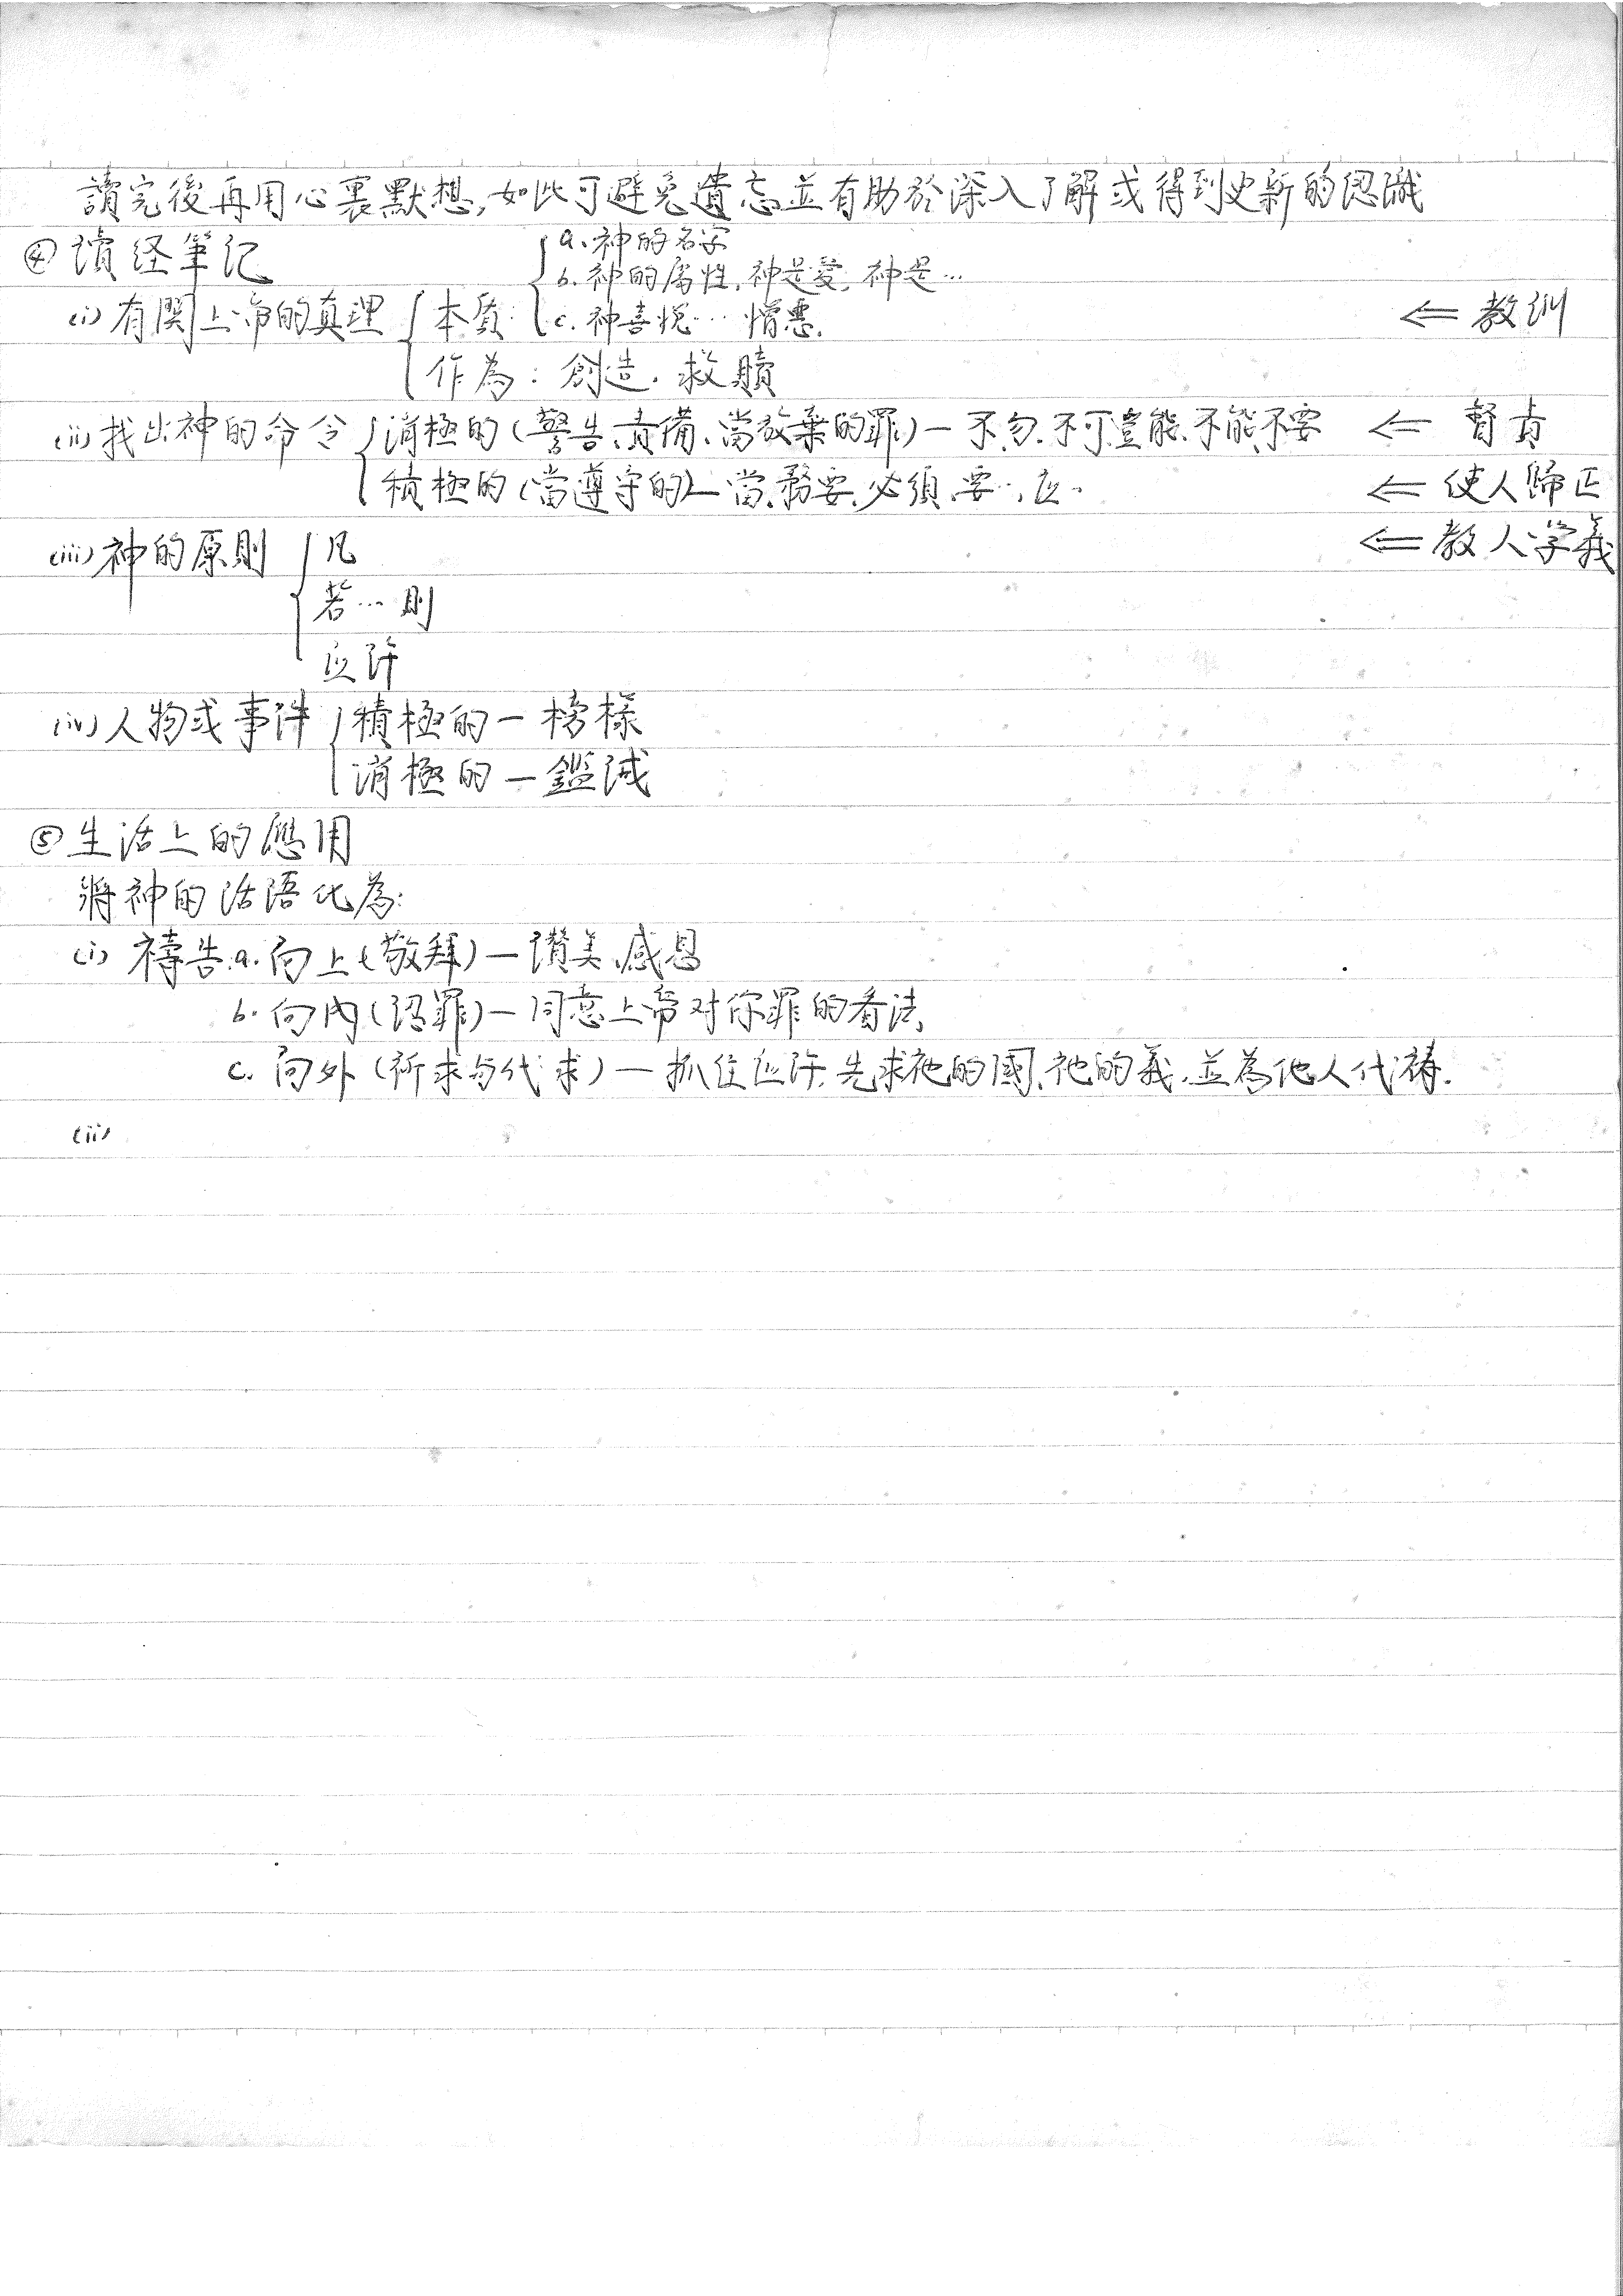 讀完後再用心裏默想，如此可避免遺忘並有助於深入了解或得到更新的認識
④ 讀経筆记
a. 神的名字
b. 神的属性，神是爱，神是…
(i) 有関上帝的真理 本质: c. 神喜悅… 憎惡. ⇐ 教训
作為: 創造. 救贖
(ii) 找出神的命令 消極的(警告、責備、當放棄的罪)—不、勿、不可、豈能、不能、不要 ⇐ 督責
積極的(當遵守的)—當、務要、必須、要…, 应… ⇐ 使人歸正
(iii) 神的原則 凡 ⇐ 教人学義
若…則
应許
(iv) 人物或事件 積極的—榜樣
消極的—鑑誡
⑤ 生活上的應用
將神的話語化為:
(i) 禱告: a. 向上(敬拜)—讚美、感恩
b. 向內(認罪)—同意上帝对你罪的看法
c. 向外(祈求与代求)—抓住应許, 先求祂的國、祂的義, 並為他人代祷.
(ii)